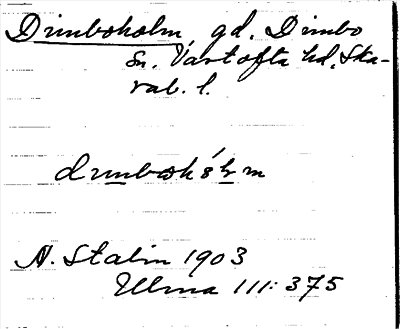 Dimboholm, gd. Dimbo
sn. Vartofta hd, Ska-
rab. l.
A. Stalin 1903
Ulma 111: 375